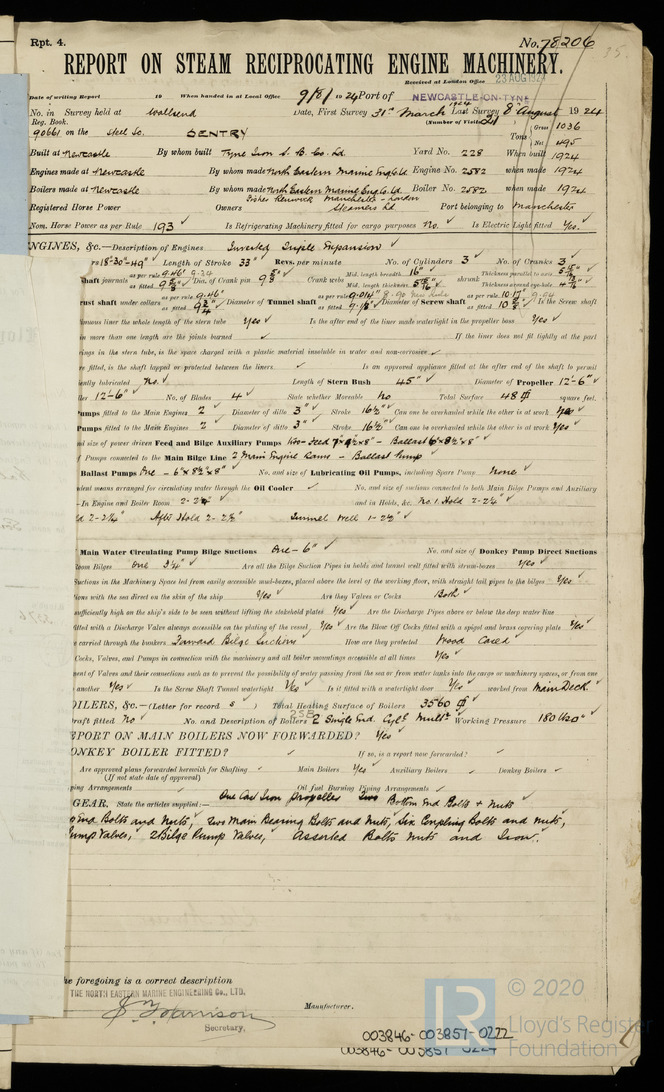 Rpt. 4.
No. 78206
REPORT ON STEAM RECIPROCATING ENGINE MACHINERY.
Received at London Office 23 AUG 1924
Date of writing Report 19 When handed in at Local Office 9/8/1924 Port of NEWCASTLE-ON-TYNE
No. in Survey held at Wallsend Date, First Survey 31st March 1924 Last Survey 8th August 1924
Reg. Book. (Number of Visits 21)
90661 on the Steel Sc. SENTRY Tons Gross 1036 Net 495
Built at Newcastle By whom built Tyne Iron S. B. Co. Ld. Yard No. 228 When built 1924
Engines made at Newcastle By whom made North Eastern Marine Eng Co Ld Engine No. 2582 when made 1924
Boilers made at Newcastle By whom made North Eastern Marine Eng. Co. Ld Boiler No. 2582 when made 1924
Registered Horse Power Owners Fisher Renwick Manchester-London Steamers Ld Port belonging to Manchester
Nom. Horse Power as per Rule 193 Is Refrigerating Machinery fitted for cargo purposes No. Is Electric Light fitted Yes.
NGINES, &c.—Description of Engines Inverted Triple Expansion
rs 18-30-49" Length of Stroke 33" Revs. per minute No. of Cylinders 3 No. of Cranks 3
shaft journals as per rule 9.46" as fitted Dia. of Crank pin Crank webs Mid. length breadth 16" Mid. length thickness shrunk Thickness parallel to axis Thickness around eye-hole
rust shaft under collars as per rule 9.46" as fitted Diameter of Tunnel shaft as per rule 9.014" as fitted Diameter of Screw shaft as per rule 10.17" as fitted Is the Screw shaft
inuous liner the whole length of the stern tube Yes Is the after end of the liner made watertight in the propeller boss Yes
n more than one length are the joints burned If the liner does not fit tightly at the part
rings in the stern tube, is the space charged with a plastic material insoluble in water and non-corrosive
re fitted, is the shaft lapped or protected between the liners Is an approved appliance fitted at the after end of the shaft to permit
iently lubricated No. Length of Stern Bush 45" Diameter of Propeller 12-6"
ller 12-6" No. of Blades 4 State whether Moveable No Total Surface 48 square feet.
umps fitted to the Main Engines 2 Diameter of ditto 3" Stroke 16½" Can one be overhauled while the other is at work Yes
umps fitted to the Main Engines 2 Diameter of ditto 3" Stroke 16½" Can one be overhauled while the other is at work Yes
nd size of power driven Feed and Bilge Auxiliary Pumps
f Pumps connected to the Main Bilge Line 2 Main Engine Rams - Ballast Pump
Ballast Pumps One - 6"x8½"x8" No. and size of Lubricating Oil Pumps, including Spare Pump None
ndent means arranged for circulating water through the Oil Cooler No. and size of suctions connected to both Main Bilge Pumps and Auxiliary
—In Engine and Boiler Room 2-2¼" and in Holds, &c. No. 1 Hold 2-2¼"
d 2-2¼" After Hold 2-2½" Tunnel Well 1-2½"
Main Water Circulating Pump Bilge Suctions One-6" No. and size of Donkey Pump Direct Suctions
Room Bilges One 3¼" Are all the Bilge Suction Pipes in holds and tunnel well fitted with strum-boxes Yes
Suctions in the Machinery Space led from easily accessible mud-boxes, placed above the level of the working floor, with straight tail pipes to the bilges Yes
ions with the sea direct on the skin of the ship Yes Are they Valves or Cocks Both
ufficiently high on the ship's side to be seen without lifting the stokehold plates Yes Are the Discharge Pipes above or below the deep water line
tted with a Discharge Valve always accessible on the plating of the vessel Yes Are the Blow Off Cocks fitted with a spigot and brass covering plate Yes
e carried through the bunkers Forward Bilge Suctions How are they protected Wood Cased
Cocks, Valves, and Pumps in connection with the machinery and all boiler mountings accessible at all times Yes
ment of Valves and their connections such as to prevent the possibility of water passing from the sea or from water tanks into the cargo or machinery spaces, or from one
another Yes Is the Screw Shaft Tunnel watertight Yes Is it fitted with a watertight door Yes worked from Main Deck.
OILERS, &c.—(Letter for record s) Total Heating Surface of Boilers 3560
raft fitted No No. and Description of Boilers 2 Single End. Cyl. Mult. 2SB Working Pressure 180 lbs
EPORT ON MAIN BOILERS NOW FORWARDED? Yes
ONKEY BOILER FITTED? If so, is a report now forwarded?
Are approved plans forwarded herewith for Shafting Main Boilers Yes Auxiliary Boilers Donkey Boilers
(If not state date of approval)
ping Arrangements Oil fuel Burning Piping Arrangements
GEAR. State the articles supplied:— One Cast Iron propeller Two Bottom End Bolts & Nuts
p End Bolts and Nuts, two Main Bearing Bolts and Nuts, Six Coupling Bolts and Nuts,
ump Valves, 2 Bilge Pump Valves, Assorted Bolts Nuts and Iron.
he foregoing is a correct description
THE NORTH EASTERN MARINE ENGINEERING Co., LTD.
Harrison
Manufacturer.
Secretary.
003846-003857-0222
© 2020
LR
Lloyd's Register
Foundation